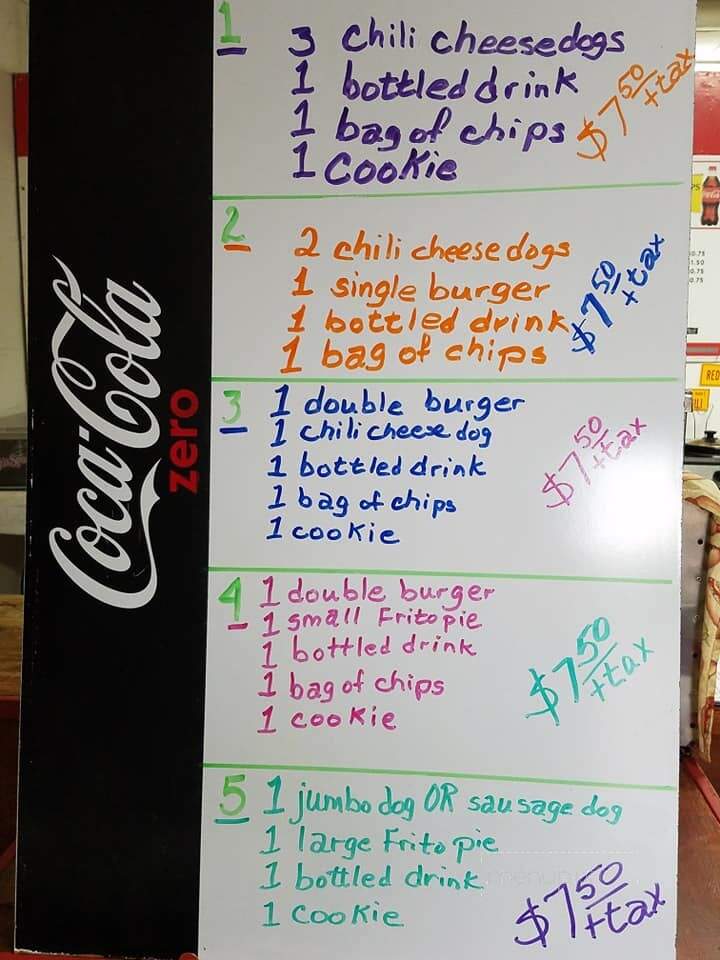 Coca-Cola
zero
1
3 chili cheesedogs
1 bottled drink
1 bag of chips
1 Cookie
$7 50 + tax
2
2 chili cheese dogs
1 single burger
1 bottled drink
1 bag of chips
$7 50 + tax
3
1 double burger
1 chili cheese dog
1 bottled drink
1 bag of chips
1 cookie
$7 50 + tax
4
1 double burger
1 small Frito pie
1 bottled drink
1 bag of chips
1 cookie
$7 50 + tax
5
1 jumbo dog OR sausage dog
1 large Frito pie
1 bottled drink
1 cookie
$7 50 + tax
RED